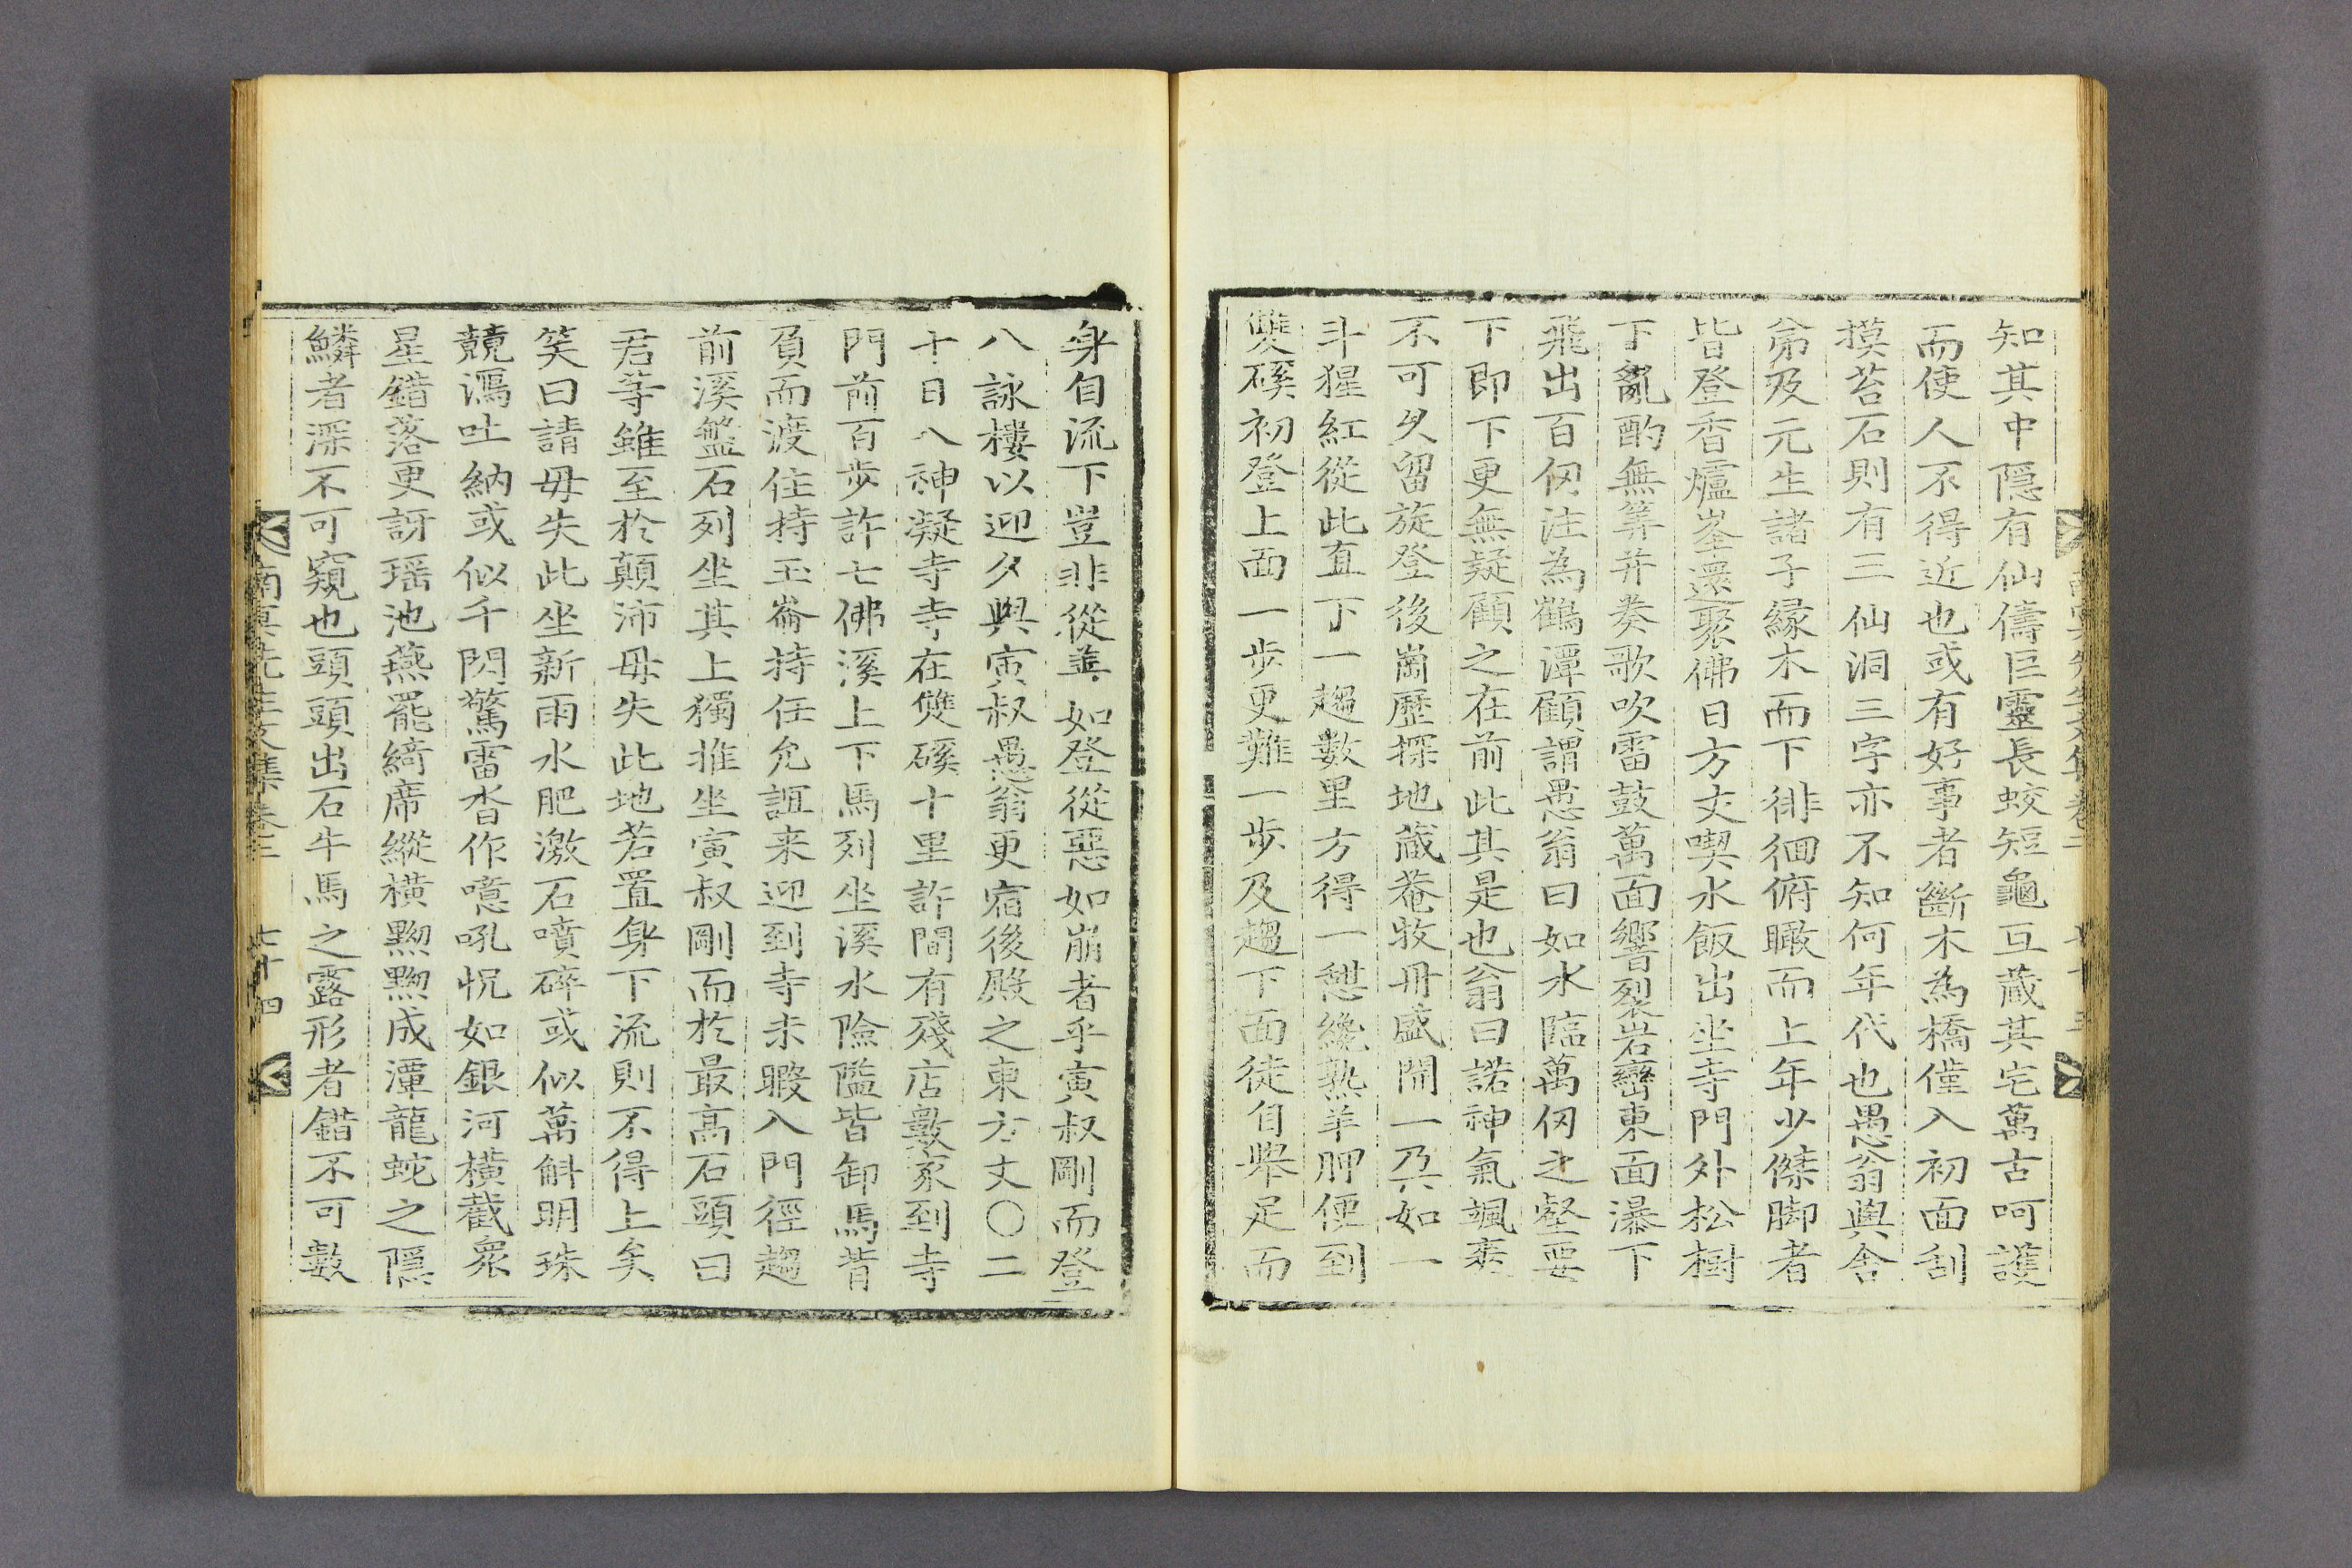 知其中隠有仙儔巨靈長蛟短龜互蔵其宅萬古呵護
而使人不得近也或有好事者斷木為橋僅入初面刮
摸苔石則有三仙洞三字亦不知何年代也愚翁與舍
弟及元生諸子縁木而下徘徊俯瞰而上年少傑脚者
皆登香爐峯還聚佛日方丈喫水飯出坐寺門外松樹
下亂酌無筭并奏歌吹雷鼓萬面響裂岩巒東面瀑下
飛出百仞注為鶴潭顧謂愚翁曰如水臨萬仞之壑要
下即下更無疑顧之在前此其是也翁曰諾神氣颯爽
不可久留旋登後崗歷探地蔵菴牧丹盛開一朶如一
斗猩紅從此直下一趨數里方得一憩纔熟羊胛便到
雙磎初登上面一步更難一步及趨下面徒自舉足而
身自流下豈非從善如登從惡如崩者乎寅叔剛而登
八詠樓以迎夕與寅叔愚翁更宿後殿之東方丈〇二
十日八神凝寺寺在雙磎十里許間有殘店數家到寺
門前百步許七佛溪上下馬列坐溪水險隘皆卸馬背
負而渡住持玉崙持任允誼来迎到寺未暇入門徑趨
前溪盤石列坐其上獨推坐寅叔剛而於最高石頭曰
君等雖至於顛沛毋失此地若置身下流則不得上矣
笑曰請毋失此坐新雨水肥激石噴碎或似萬斛明珠
競瀉吐納或似千閃驚雷沓作噫吼怳如銀河橫截衆
星錯落更訝瑶池燕罷綺席縱橫黝黝成潭龍蛇之隱
鱗者深不可窺也頭頭出石牛馬之露形者錯不可數
南冥先生文集卷二
七十四